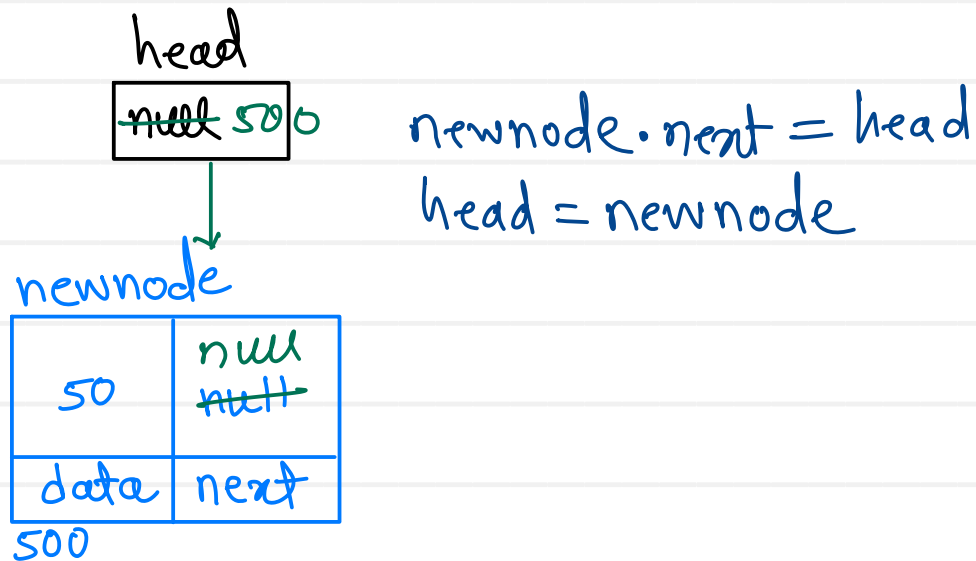 head
null 500
newnode.next = head
head = newnode
newnode
null
50 null
data next
500